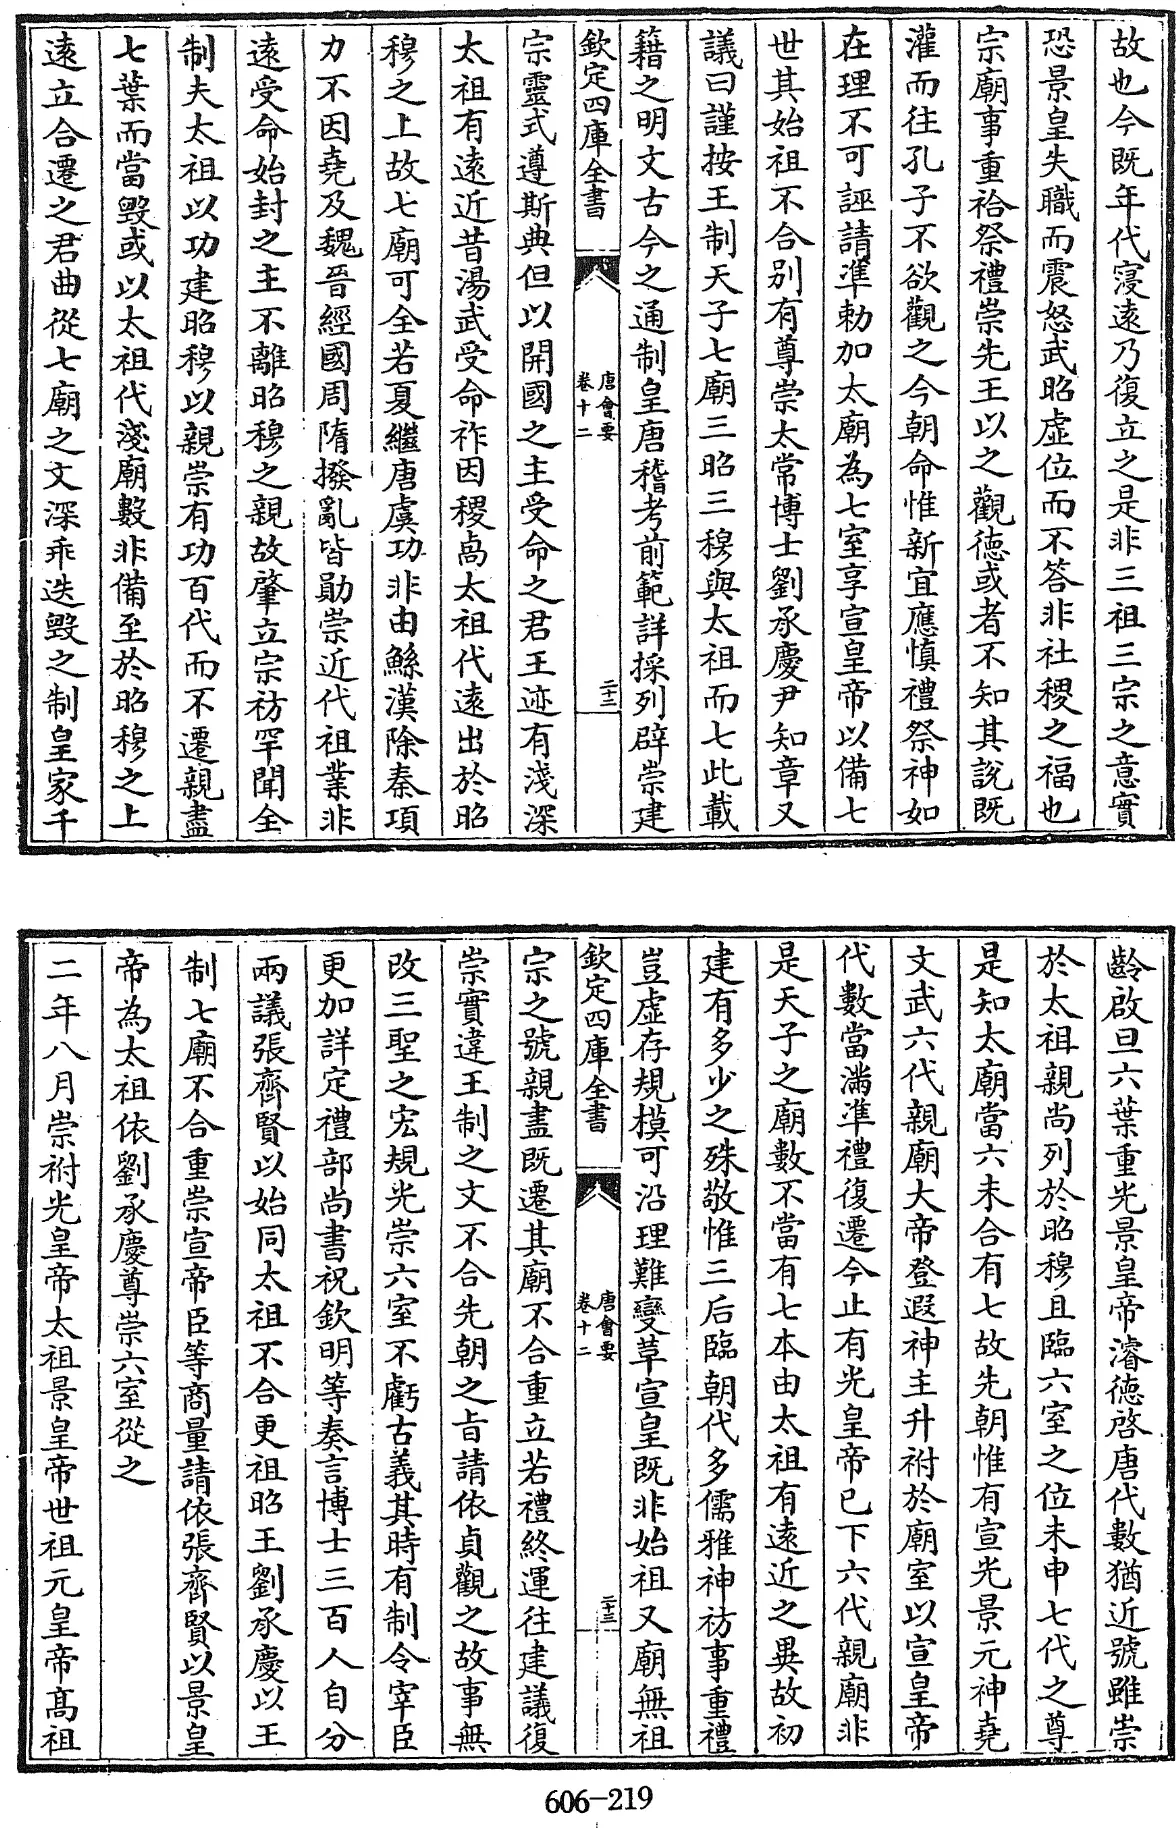 故也今既年代寖遠乃復立之是非三祖三宗之意實
恐景皇失職而震怒武昭虛位而不答非社稷之福也
宗廟事重祫祭禮崇先王以之觀德或者不知其說既
灌而往孔子不欲觀之今朝命惟新宜應慎禮祭神如
在理不可誣請準勅加太廟為七室享宣皇帝以備七
世其始祖不合别有尊崇太常博士劉承慶尹知章又
議曰謹按王制天子七廟三昭三穆與太祖而七此載
籍之明文古今之通制皇唐稽考前範詳採列辟崇建
欽定四庫全書
唐會要
卷十二
二十三
宗靈式遵斯典但以開國之主受命之君王迹有淺深
太祖有遠近昔湯武受命祚因稷卨太祖代遠出於昭
穆之上故七廟可全若夏繼唐虞功非由鯀漢除秦項
力不因堯及魏晉經國周隋撥亂皆勛崇近代祖業非
遠受命始封之主不離昭穆之親故肇立宗祊罕聞全
制夫太祖以功建昭穆以親崇有功百代而不遷親盡
七葉而當毀或以太祖代淺廟數非備至於昭穆之上
遠立合遷之君曲從七廟之文深乖迭毀之制皇家千
齡啟旦六葉重光景皇帝濬德啓唐代數猶近號雖崇
於太祖親尚列於昭穆且臨六室之位未申七代之尊
是知太廟當六未合有七故先朝惟有宣光景元神堯
文武六代親廟大帝登遐神主升祔於廟室以宣皇帝
代數當滿準禮復遷今止有光皇帝已下六代親廟非
是天子之廟數不當有七本由太祖有遠近之異故初
建有多少之殊敬惟三后臨朝代多儒雅神祊事重禮
豈虛存規模可沿理難變革宣皇既非始祖又廟無祖
欽定四庫全書
唐會要
卷十二
二十三
宗之號親盡既遷其廟不合重立若禮終運往建議復
崇實違王制之文不合先朝之旨請依貞觀之故事無
改三聖之宏規光崇六室不虧古義其時有制令宰臣
更加詳定禮部尚書祝欽明等奏言博士三百人自分
兩議張齊賢以始同太祖不合更祖昭王劉承慶以王
制七廟不合重崇宣帝臣等商量請依張齊賢以景皇
帝為太祖依劉承慶尊崇六室從之
二年八月崇祔光皇帝太祖景皇帝世祖元皇帝髙祖
606-219